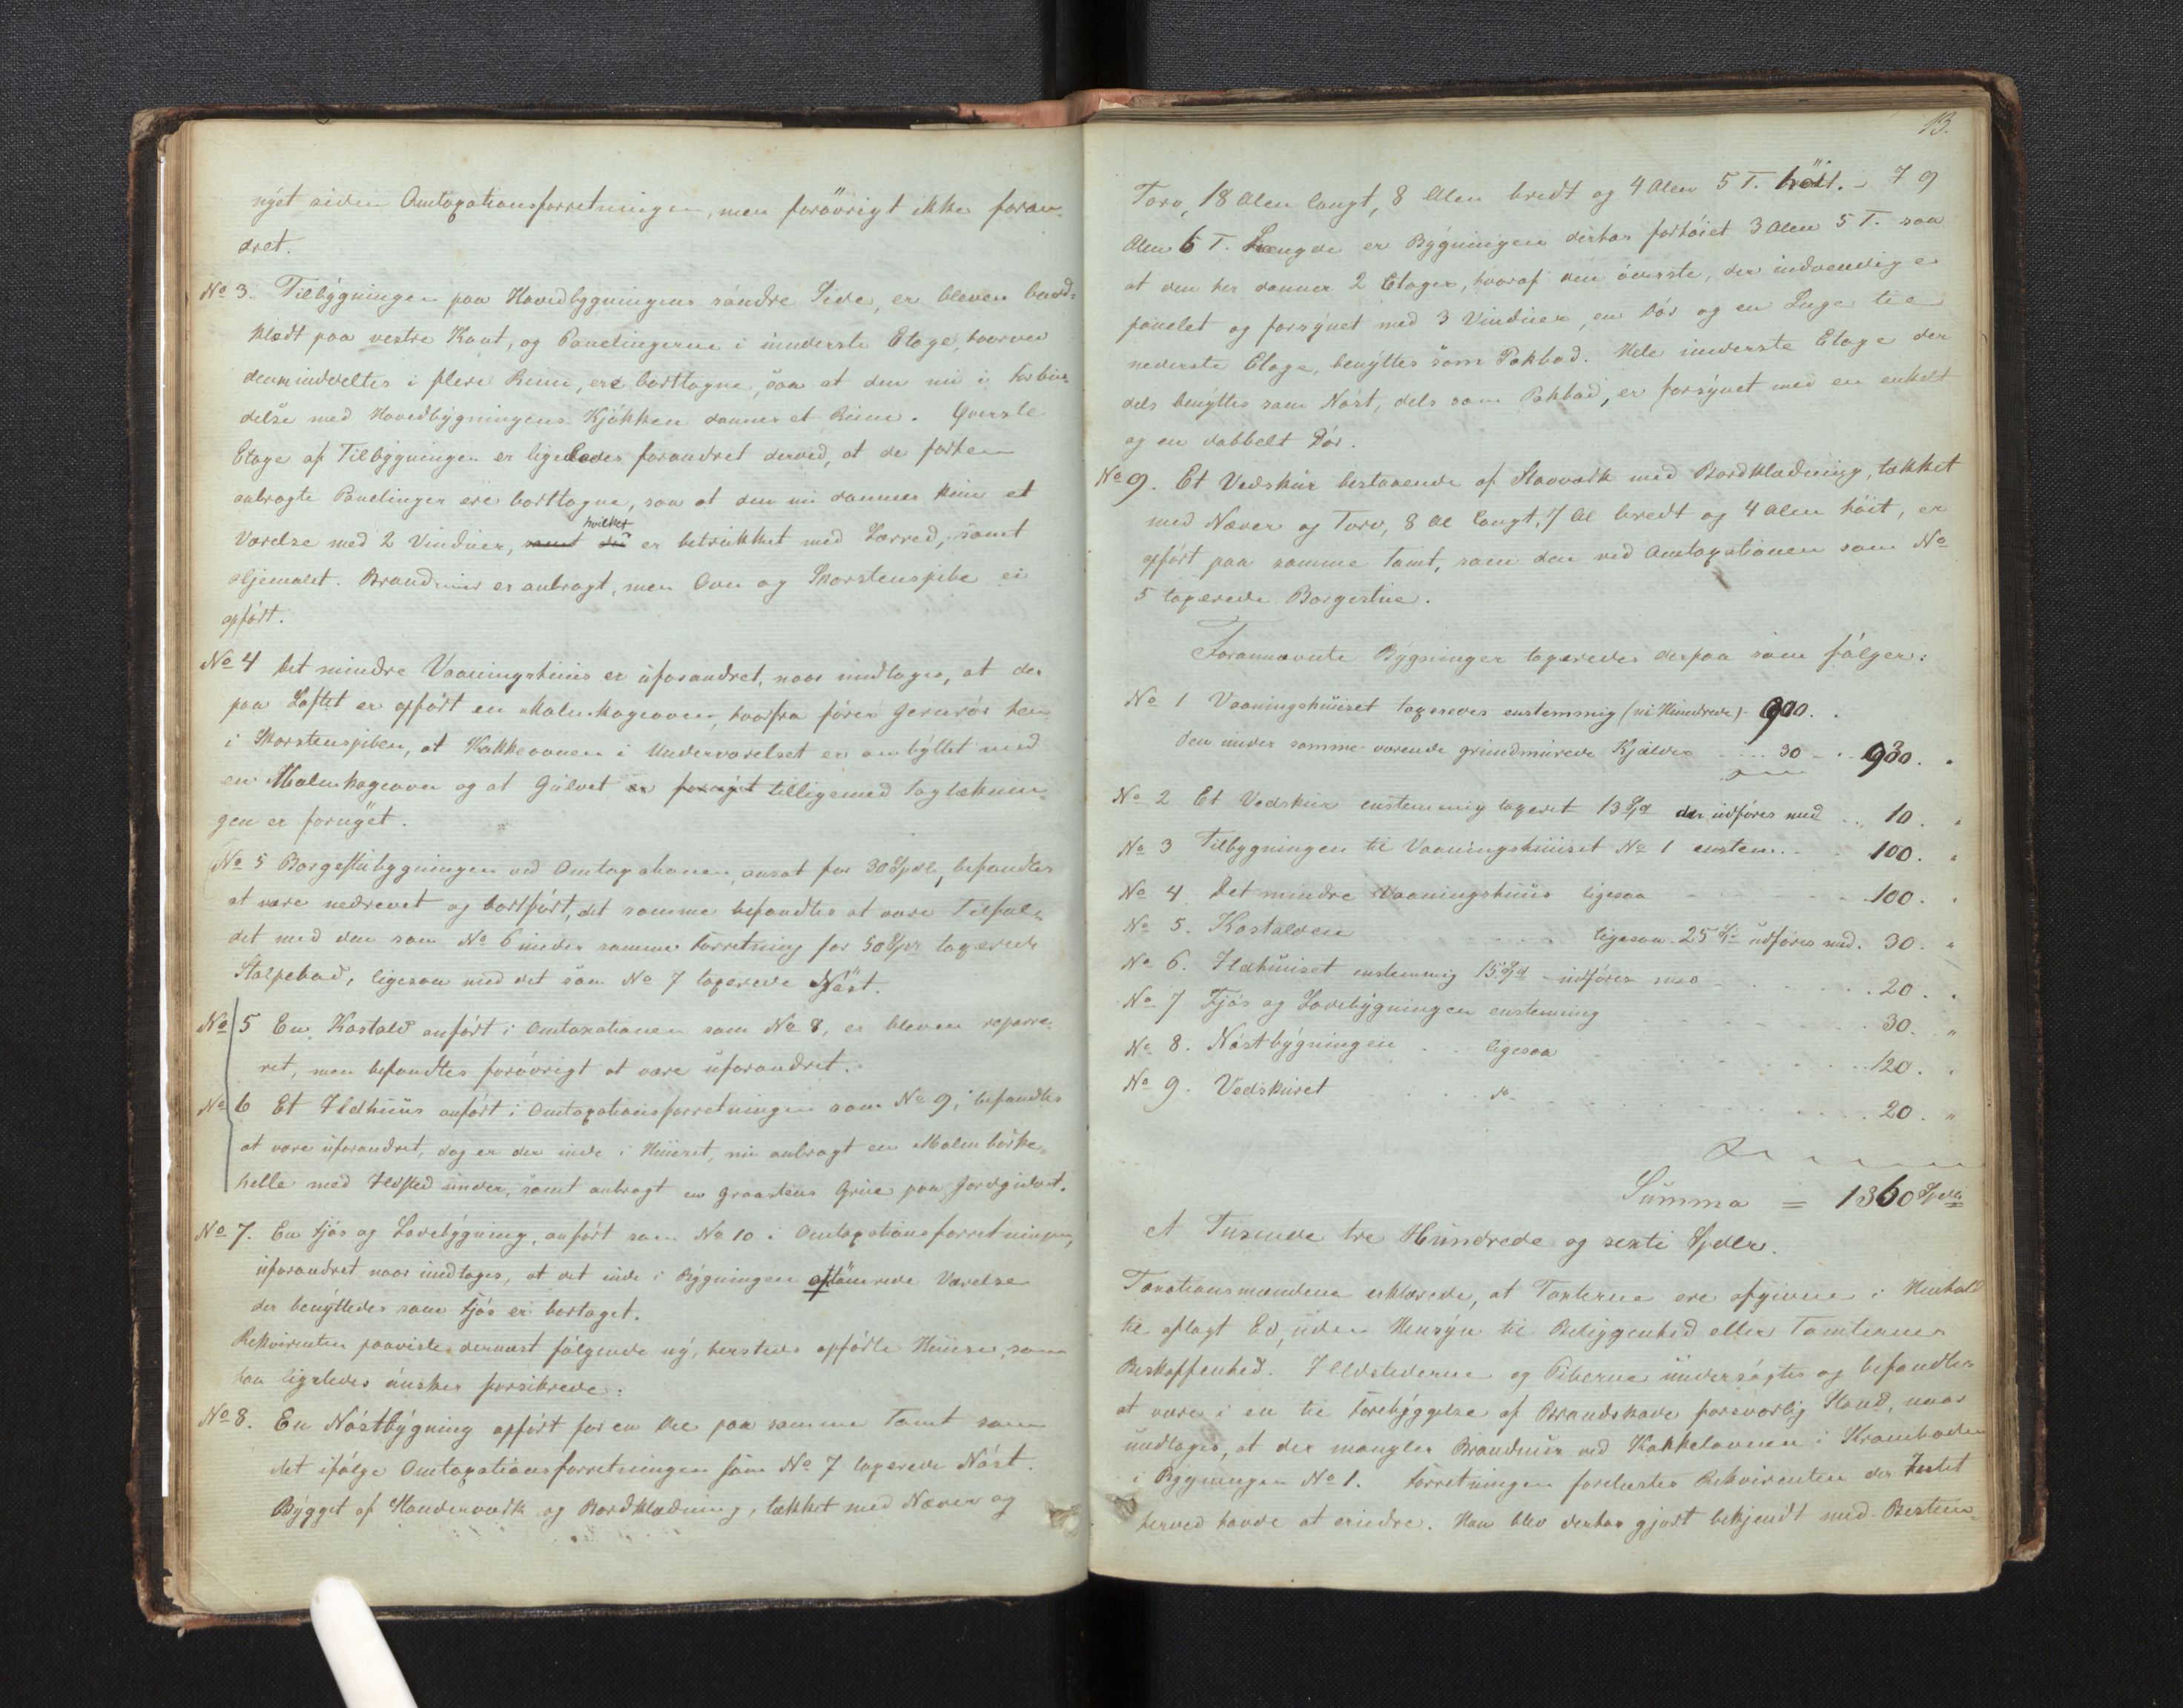 nyet siden Omtaxationsforretningen, men forøvrigt ikke foran-
dret.
No 3. Tilbygningen paa Hovedbygningens søndre Side, er bleven bord-
klædt paa vestre Kant, og Panelingerne i underste Etage, hvorved
den inddeltes i flere Rum, ere borttagne, saa at den nu i Forbin-
delse med Hovedbygningens Kjøkken danner et Rum. Øverste
Etage af Tilbygningen er ligeledes forandret derved, at de forhen
anbragte Panelinger ere borttagne, saa at den nu danner kun et
Værelse med 2 Vinduer, hvilket er betrukket med Lærred, samt
oljemalet. Brandmur er anbragt, men Ovn og Skorstenspibe ei
opført.
No 4 Det mindre Vaaningshuus er uforandret, naar undtages, at der
paa Loftet er opført en Malm kogeovn, hvorfra fører Jernrør hen
i Skorstenspiben, at Kakkeovnen i Underværelset er ombyttet med
en Malmkogeovn og at Gulvet er fornyet tilligemed Tagtæknin-
gen er fornyet.
No 5 Borgestubygningen ved Omtaxationen ansat for 30 Spdl, befandtes
at være nedrevet og bortført, det samme befandtes at være Tilfæl-
det med den som No 6 under samme Forretning for 50 Spdr taxerede
Stolpebod, ligesaa med det som No 7 taxerede Nøst.
No 5 En Kostald anført i Omtaxationen som No 8, er bleven repare-
ret, men befandtes forøvrigt at være uforandret.
No 6 Et Ildhuus anført i Omtaxationsforretningen som No 9, befandtes
at være uforandret, dog er der inde i Huuset, nu anbragt en Malm tørke-
helle med Ildsted under, samt anbragt en Graasteens Grue paa Jordgulvet.
No 7. En Fjøs og Ladebygning, anført som No 10 i Omtaxationsforretningen,
uforandret naar undtages, at det inde i Bygningen aftømrede Værelse
der benyttedes som Fjøs er borttaget.
Rekvirenten paaviste dernæst følgende ny, hersteds opførte Huuse, som
han ligeledes ønsker forsikrede:
No 8. En Nøstbygning opført for en Del paa samme Tomt som
det ifølge Omtaxationsforretningen som No 7 taxerede Nøst.
Bygget af Standerværk og Bordklædning, tækket med Næver og
13.
Torv, 18 Alen langt, 8 Alen bredt og 4 Alen 5 T. höit. - I 9
Alen 6 T. Længde er Bygningen derhos forhøiet 3 Alen 5 T. saa
at den her danner 2 Etager, hvoraf den øverste, der indvendig er
panelet og forsynet med 3 Vinduer, en Dør og en Luge til
nederste Etage, benyttes som Pakbod. Hele underste Etage der
dels benyttes som Nøst, dels som Pakbod, er forsynet med en enkelt
og en dobbelt Dør.
No 9. Et Vedskur bestaaende af Stavværk med Bordklædning, tækket
med Næver og Torv, 8 Al langt, 7 Al bredt og 4 Alen høit, er
opført paa samme Tomt, som den ved Omtaxationen som No
5 taxerede Borgestue.
Forannævnte Bygninger taxeredes derpaa som følger:
No 1 Vaaningshuuset taxeredes enstemmig (ni Hundrede) 900.
den under samme værende grundmurede Kjælder 30 - 930.
No 2 Et Vedskur enstemmig taxeret 13 Spd der udføres med 10.
No 3 Tilbygningen til Vaaningshuuset No 1 enstem. 100.
No 4. Det mindre Vaaningshuus ligesaa 100.
No 5. Kostalden ligesaa 25 Spd udføres med. 30.
No 6. Ildhuuset enstemmig 15 Spd udføres med 20.
No 7 Fjøs og Ladebygningen enstemmig 30. "
No 8. Nøstbygningen ligesaa 120.
No 9. Vedskuret do 20. "
Summa = 1360 Spdlr
et Tusinde tre Hundrede og sexti Spdlr.
Taxationsmændene erklærede, at Taxterne ere afgivne i Henhold
til aflagt Ed, uden Hensyn til Beliggenhed eller Tomternes
Beskaffenhed. Ildstederne og Piberne undersøgtes og befandtes
at være i en til Forebyggelse af Brandskade forsvarlig Stand, naar
undtages, at der mangler Brandmur ved Kakkelovnen i Kramboden
i Bygningen No 1. Forretningen forelæstes Rekvirenten der Intet
herved havde at erindre. Han blev derhos gjort bekjendt med Bestem-